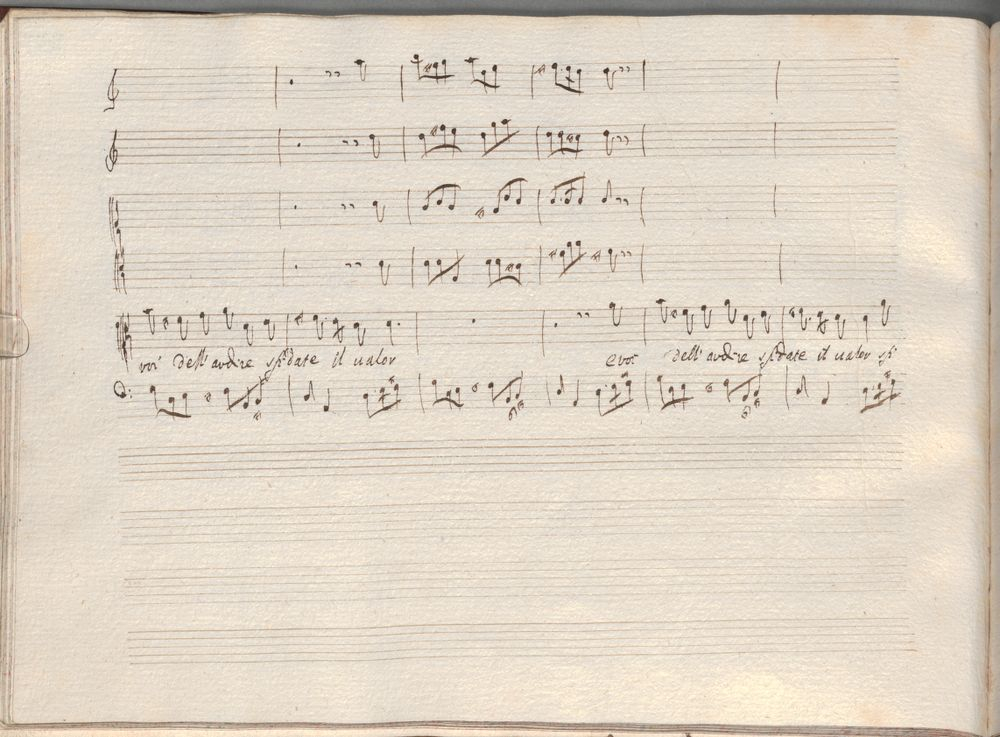 voi dell' ardire sfidate il valor e voi dell' ardire sfidate il valor sfi